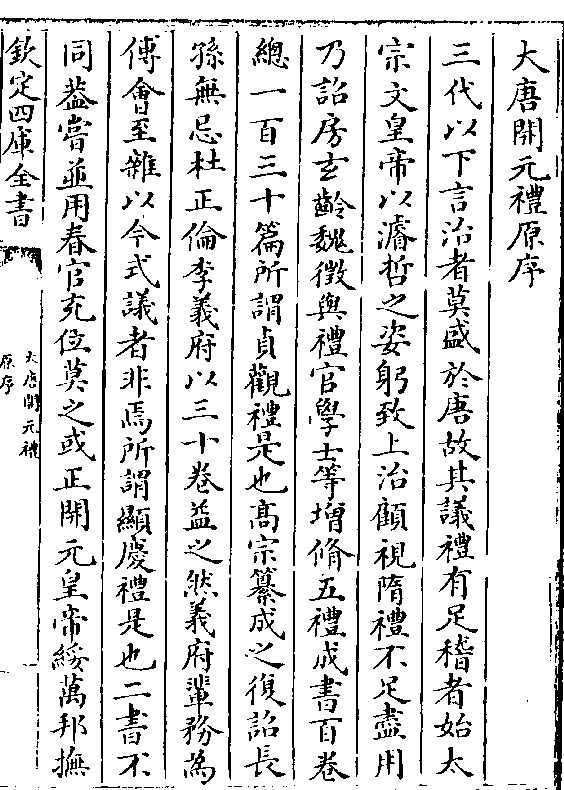 大唐開元禮原序
三代以下言治者莫盛於唐故其議禮有足稽者始太
宗文皇帝以濬哲之姿躬致上治顧視隋禮不足盡用
乃詔房玄齡魏徵與禮官學士等增脩五禮成書百卷
總一百三十篇所謂貞觀禮是也高宗纂成之復詔長
孫無忌杜正倫李義府以三十卷益之然義府輩務為
傅會至雜以令式議者非焉所謂顯慶禮是也二書不
同葢嘗並用春官充位莫之或正開元皇帝綏萬邦撫
欽定四庫全書
大唐開元禮
原序